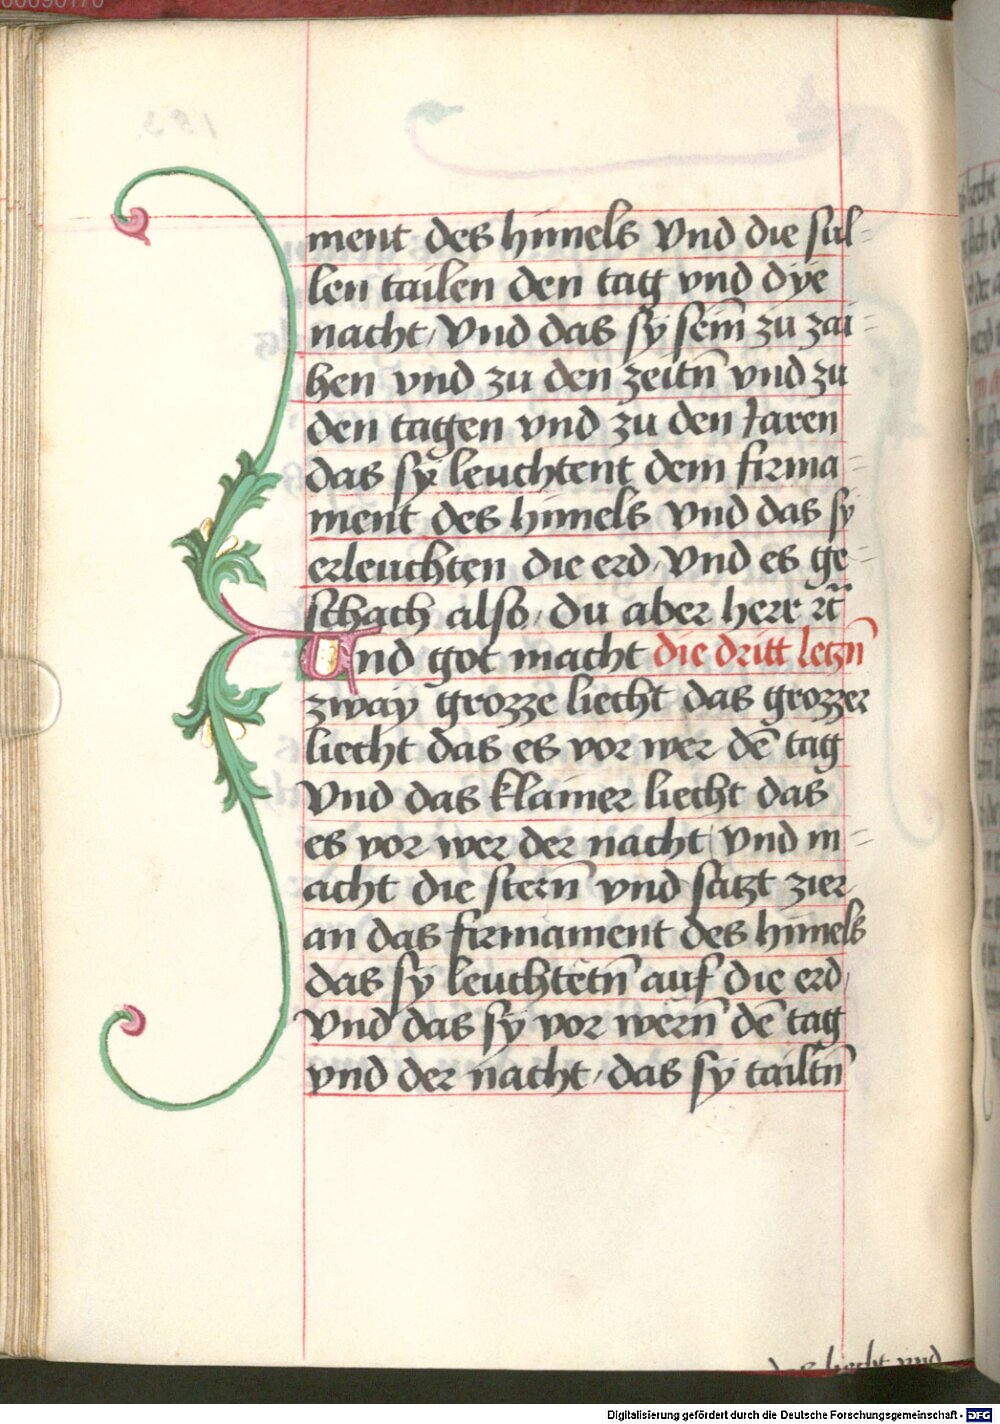 ment des himels Vnd die sül-
len tailen den tag vnd dye
nacht/ Vnd das sÿ sein̄ zu zai-
hen vnd zu den zeitn̄ vnd zu
den tagen vnd zu den Jaren
das sÿ leuchtent dem firma-
ment des himels Vnd das sÿ
erleuchten die erd/ Vnd es ge-
schach also/ Du aber herr rc̄
Vnd got macht die dritt letzn̄
zwaÿ grozze liecht das grozzer
liecht das es vor wer dē tag
Vnd das klainer liecht das
es vor wer der nacht/ Vnd m-
acht die stern̄ vnd satzt zier
an das firmament des himels
das sÿ leuchtetn̄ auf die erd/
Vnd das sÿ vor wern̄ dē tag
vnd der nacht/ das sÿ tailtn̄
das liecht vnd
Digitalisierung gefördert durch die Deutsche Forschungsgemeinschaft - DFG